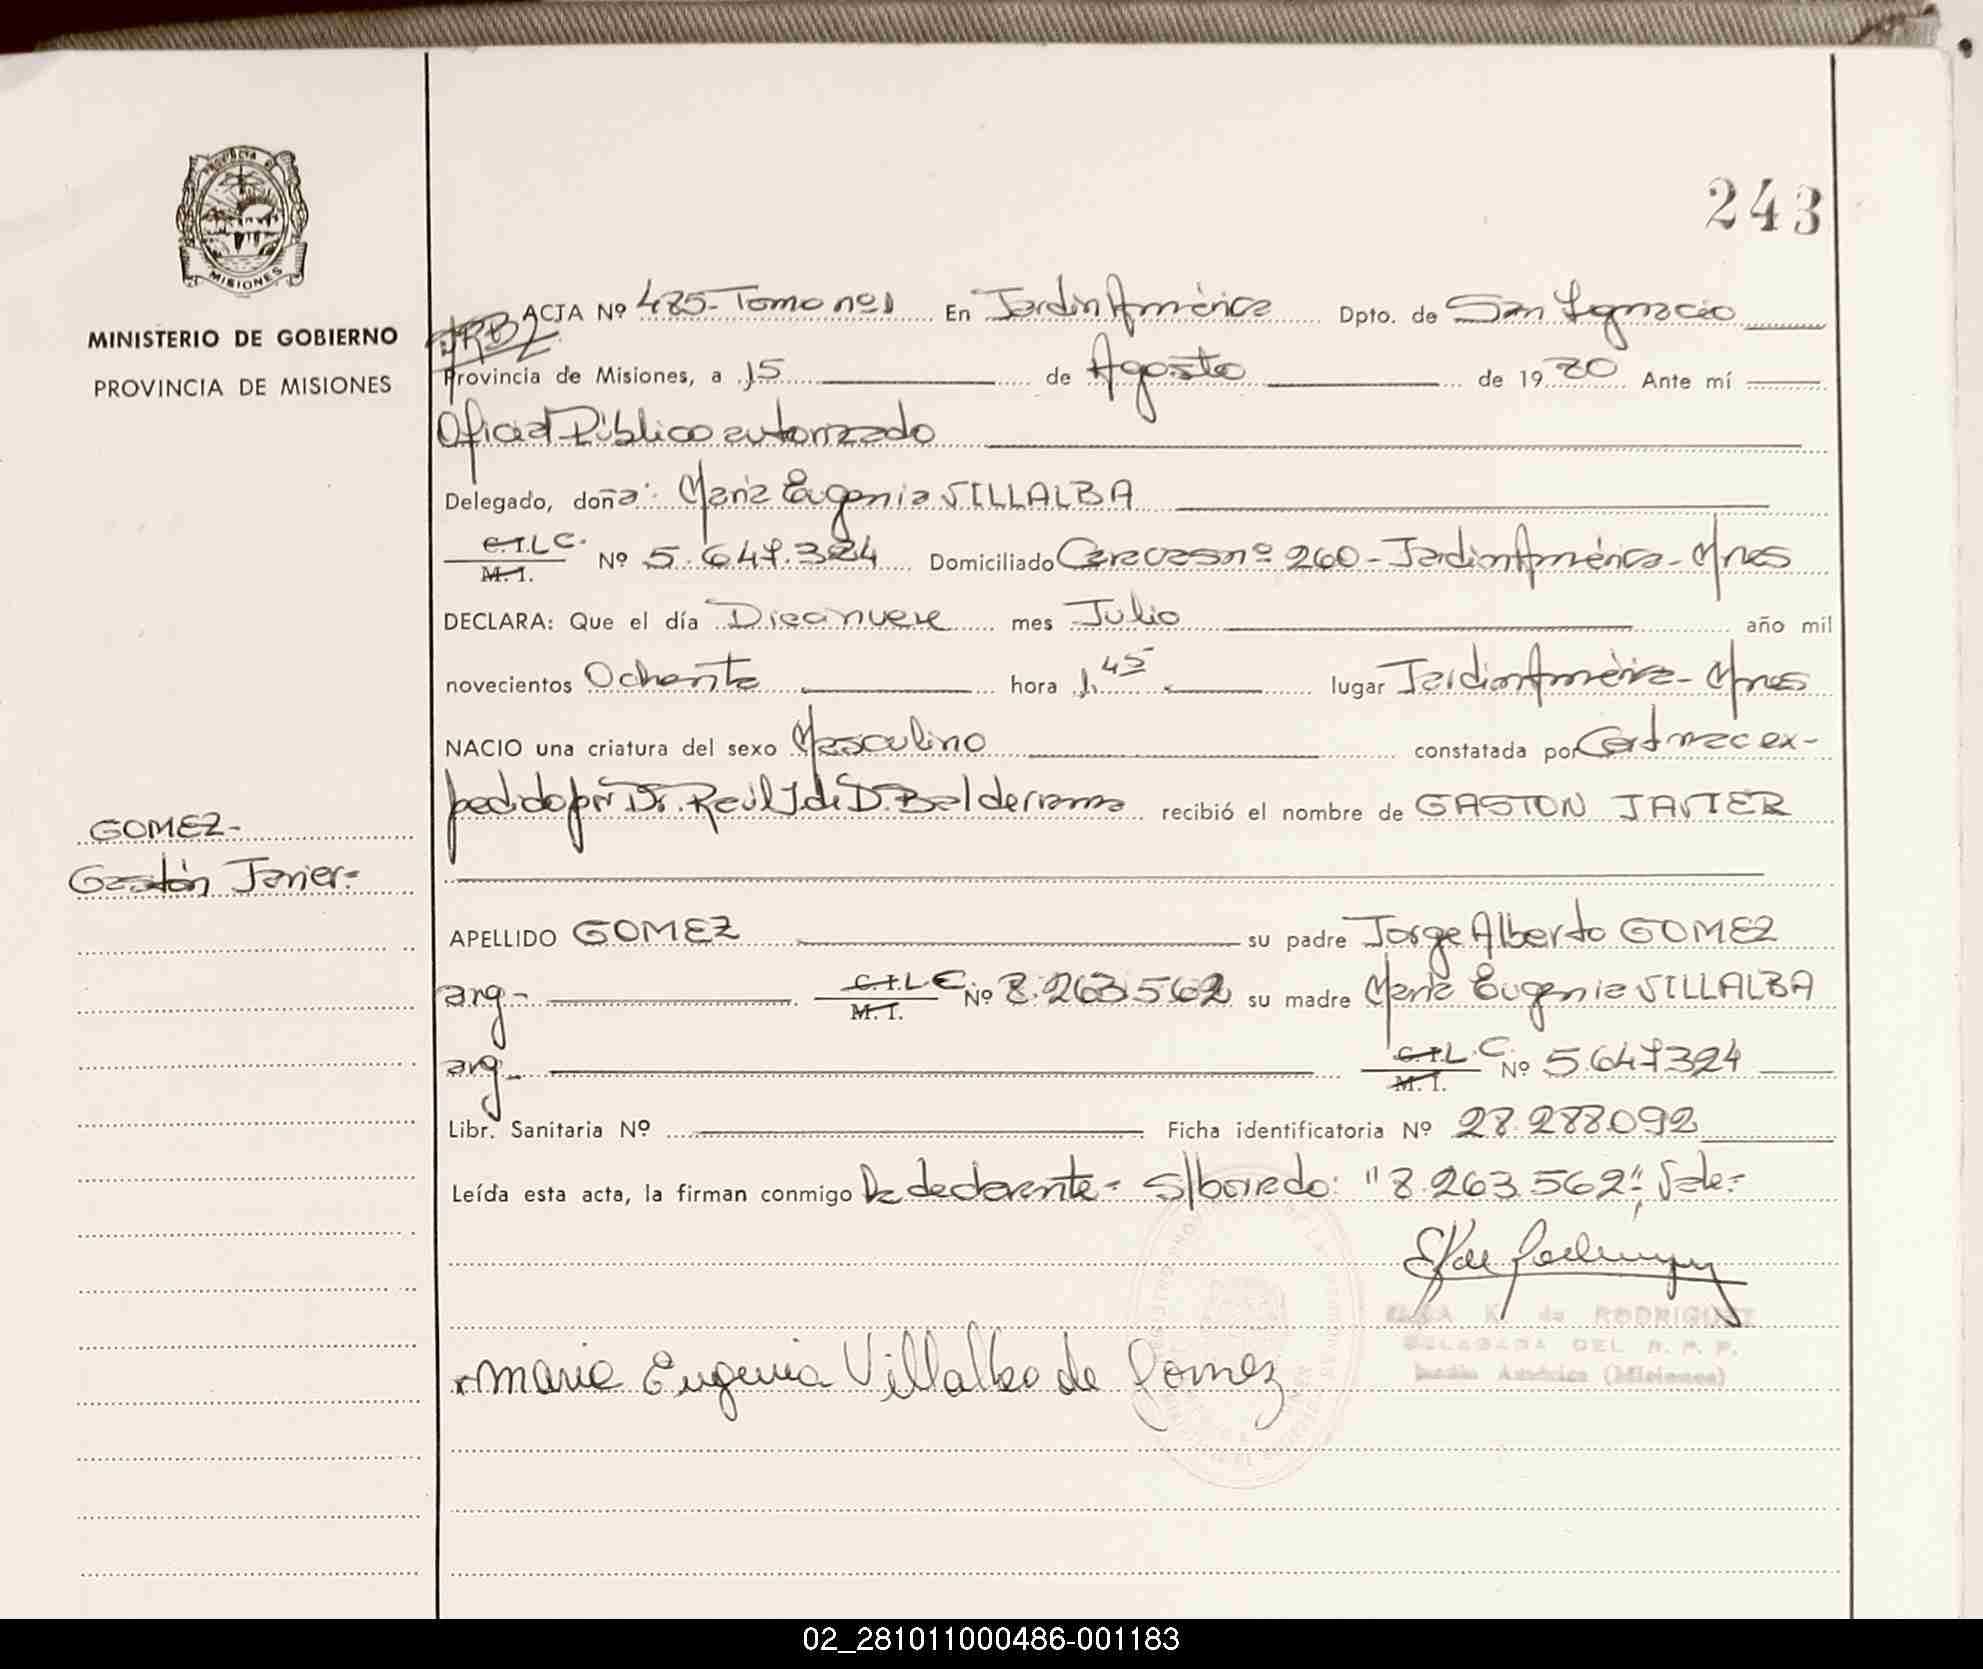 PROVINCIA DE
MISIONES
MINISTERIO DE GOBIERNO
PROVINCIA DE MISIONES
243
ACTA Nº 485-Tomo nº1 En Jardín América Dpto. de San Ignacio
Provincia de Misiones, a 15 de Agosto de 1980 Ante mí
Oficial Público autorizado
Delegado, doña: María Eugenia VILLALBA
C.I.L C. M.I. Nº 5.647.384 Domiciliado Caracas nº 260-Jardín América-Mnes
DECLARA: Que el día Diecinueve mes Julio año mil
novecientos Ochenta hora 1.45 lugar Jardín América-Mnes
NACIO una criatura del sexo Masculino constatada por Cert. mec ex-
pedido por Dr. Raúl J. de D. Balderrama recibió el nombre de GASTON JAVIER
GOMEZ-
Gastón Javier-
APELLIDO GOMEZ su padre Jorge Alberto GOMEZ
arg- C.I.L E M.I. Nº 8.263.562 su madre María Eugenia VILLALBA
arg- C.I.L.C. M.I. Nº 5.647.384
Libr. Sanitaria Nº Ficha identificatoria Nº 28.288.092
Leída esta acta, la firman conmigo la declarante- s/borrado: "8.263.562". Vale-
K. de RODRIGUEZ
DELEGADA DEL R. P. P.
Jardín América (Misiones)
Maria Eugenia Villalba de Gomez
02_281011000486-001183